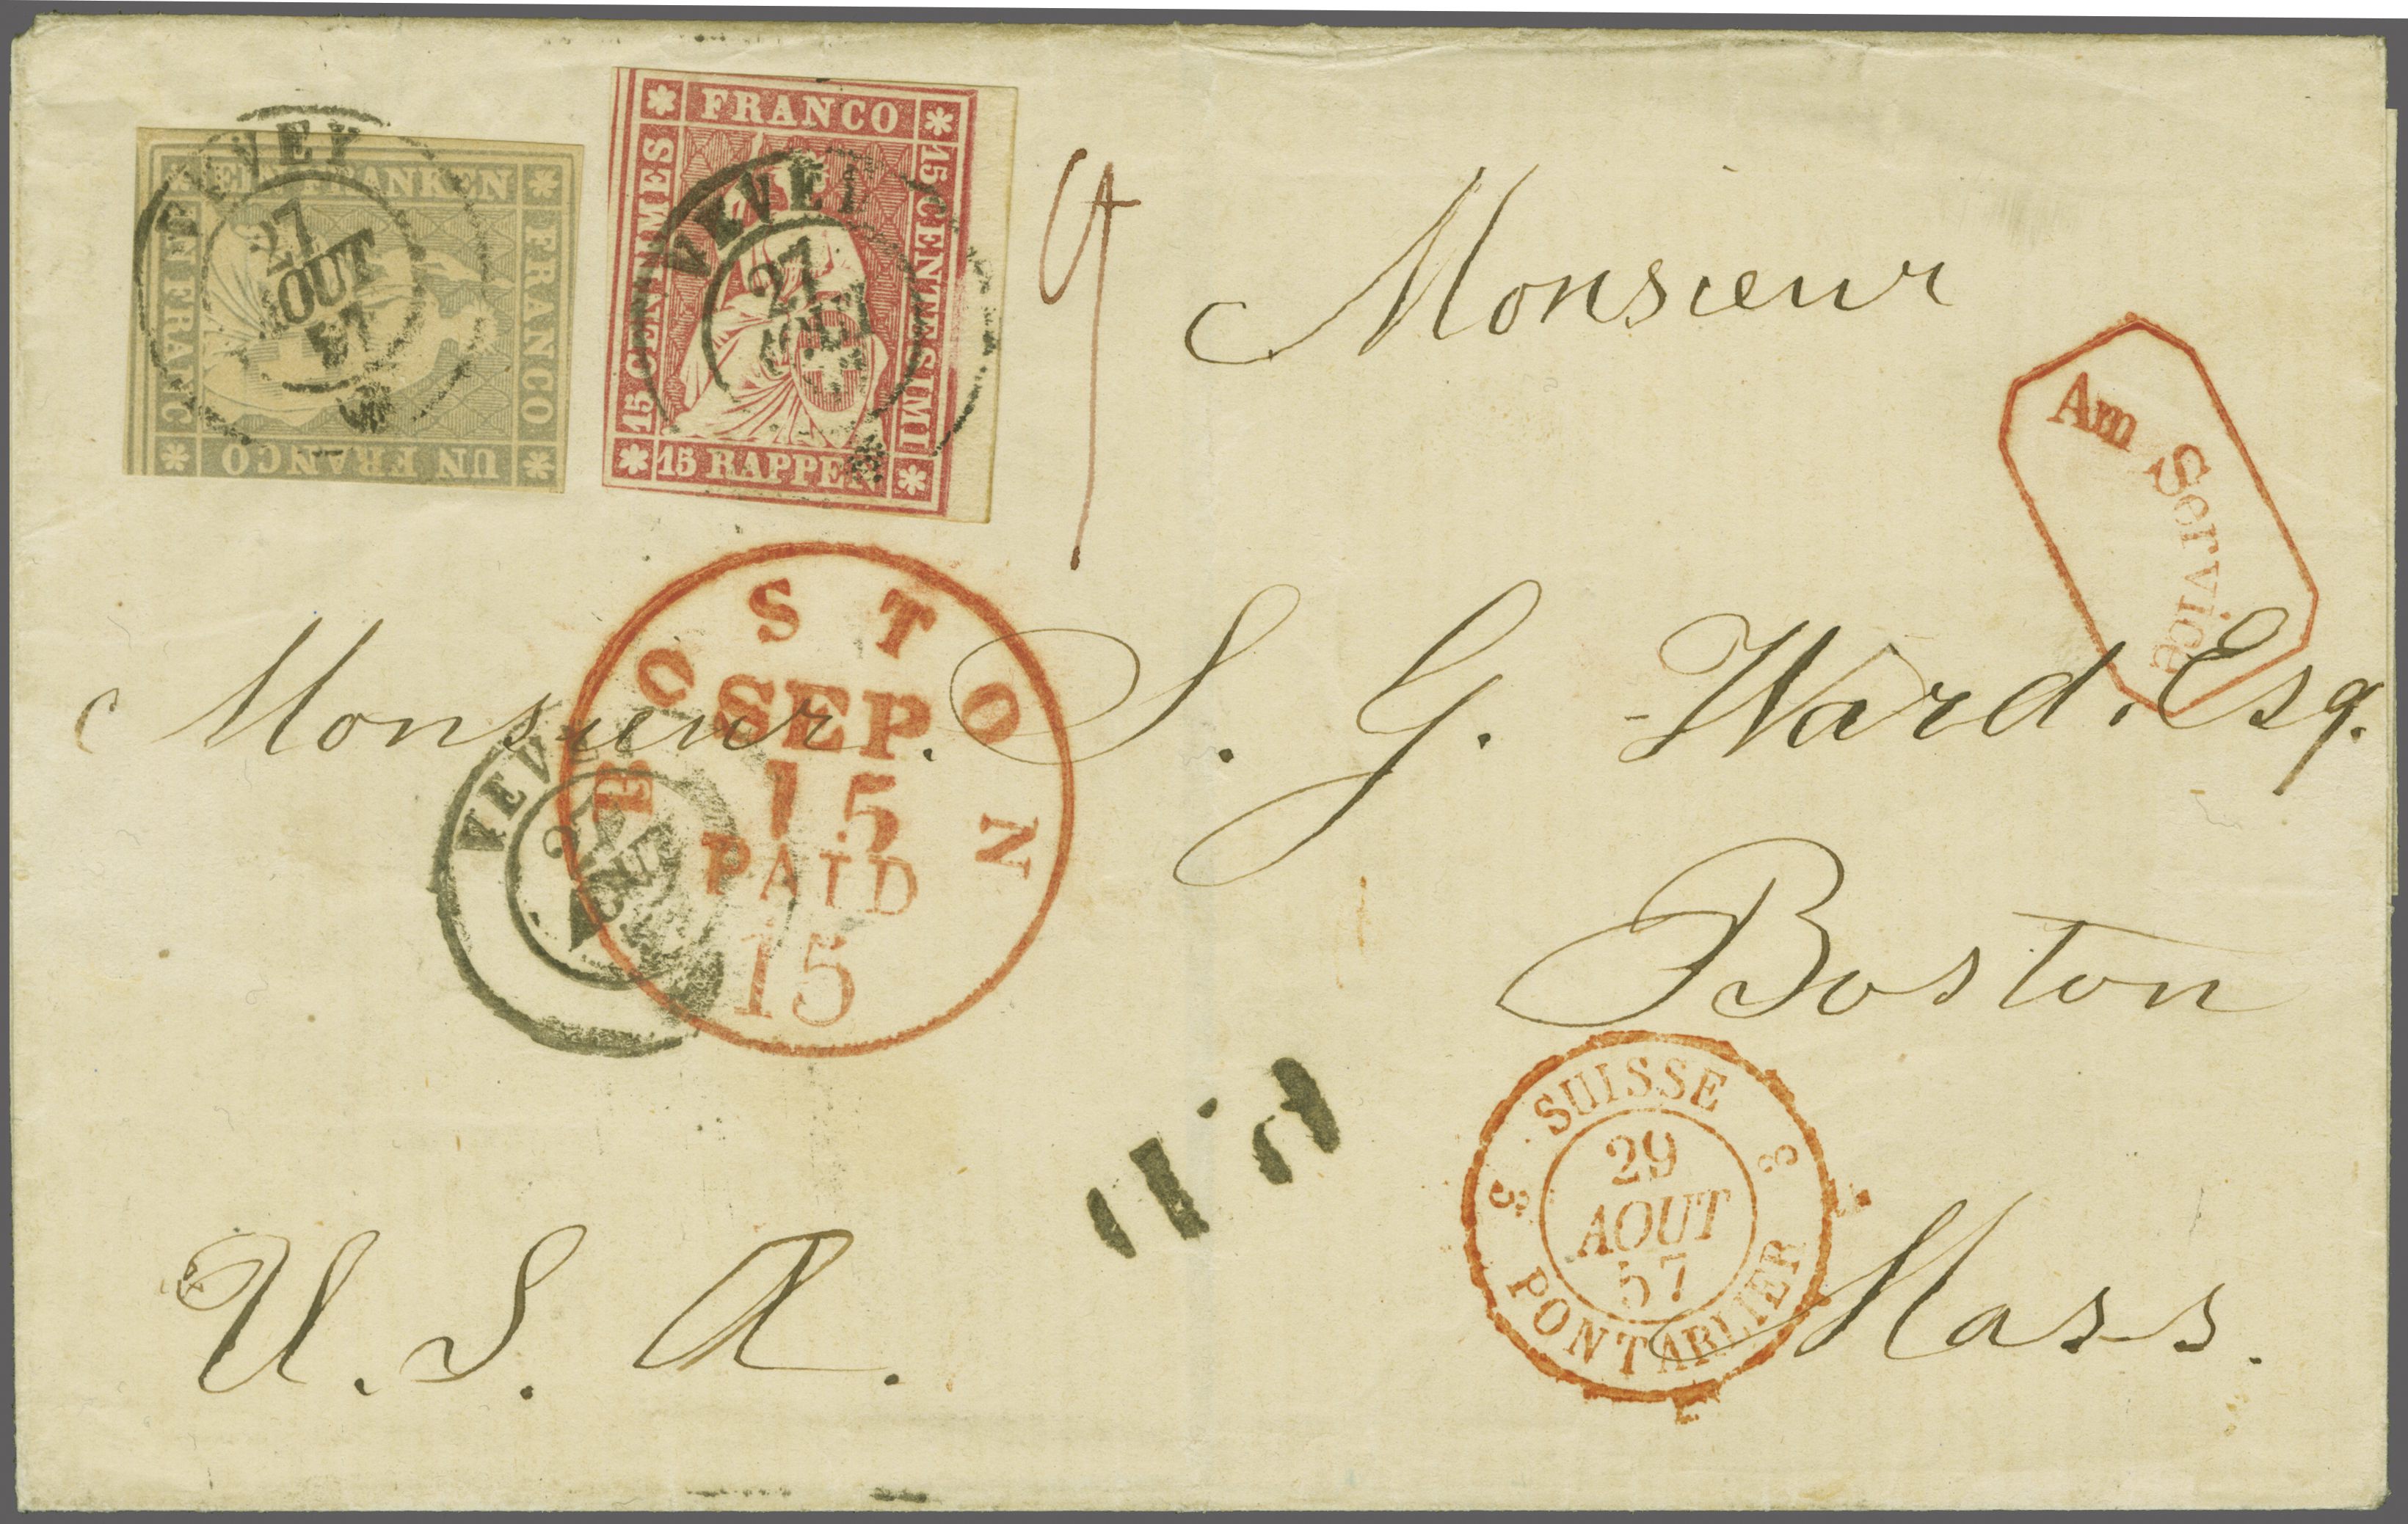 VEVEY
27
AOUT
57
EIN FRANKEN
FRANCO
UN FRANCO
UN FRANC
FRANCO
15 CENTIMES
15 CENTESIMI
15 RAPPEN
VEVEY
27
AOUT
Monsieur
Am Service
Monsieur. S. G. Ward. Esq.
BOSTON
SEP
15
PAID
15
VEVEY
27
AOUT
Boston
SUISSE
3 3
29
AOUT
57
PONTARLIER
U. S. A.
Mass.